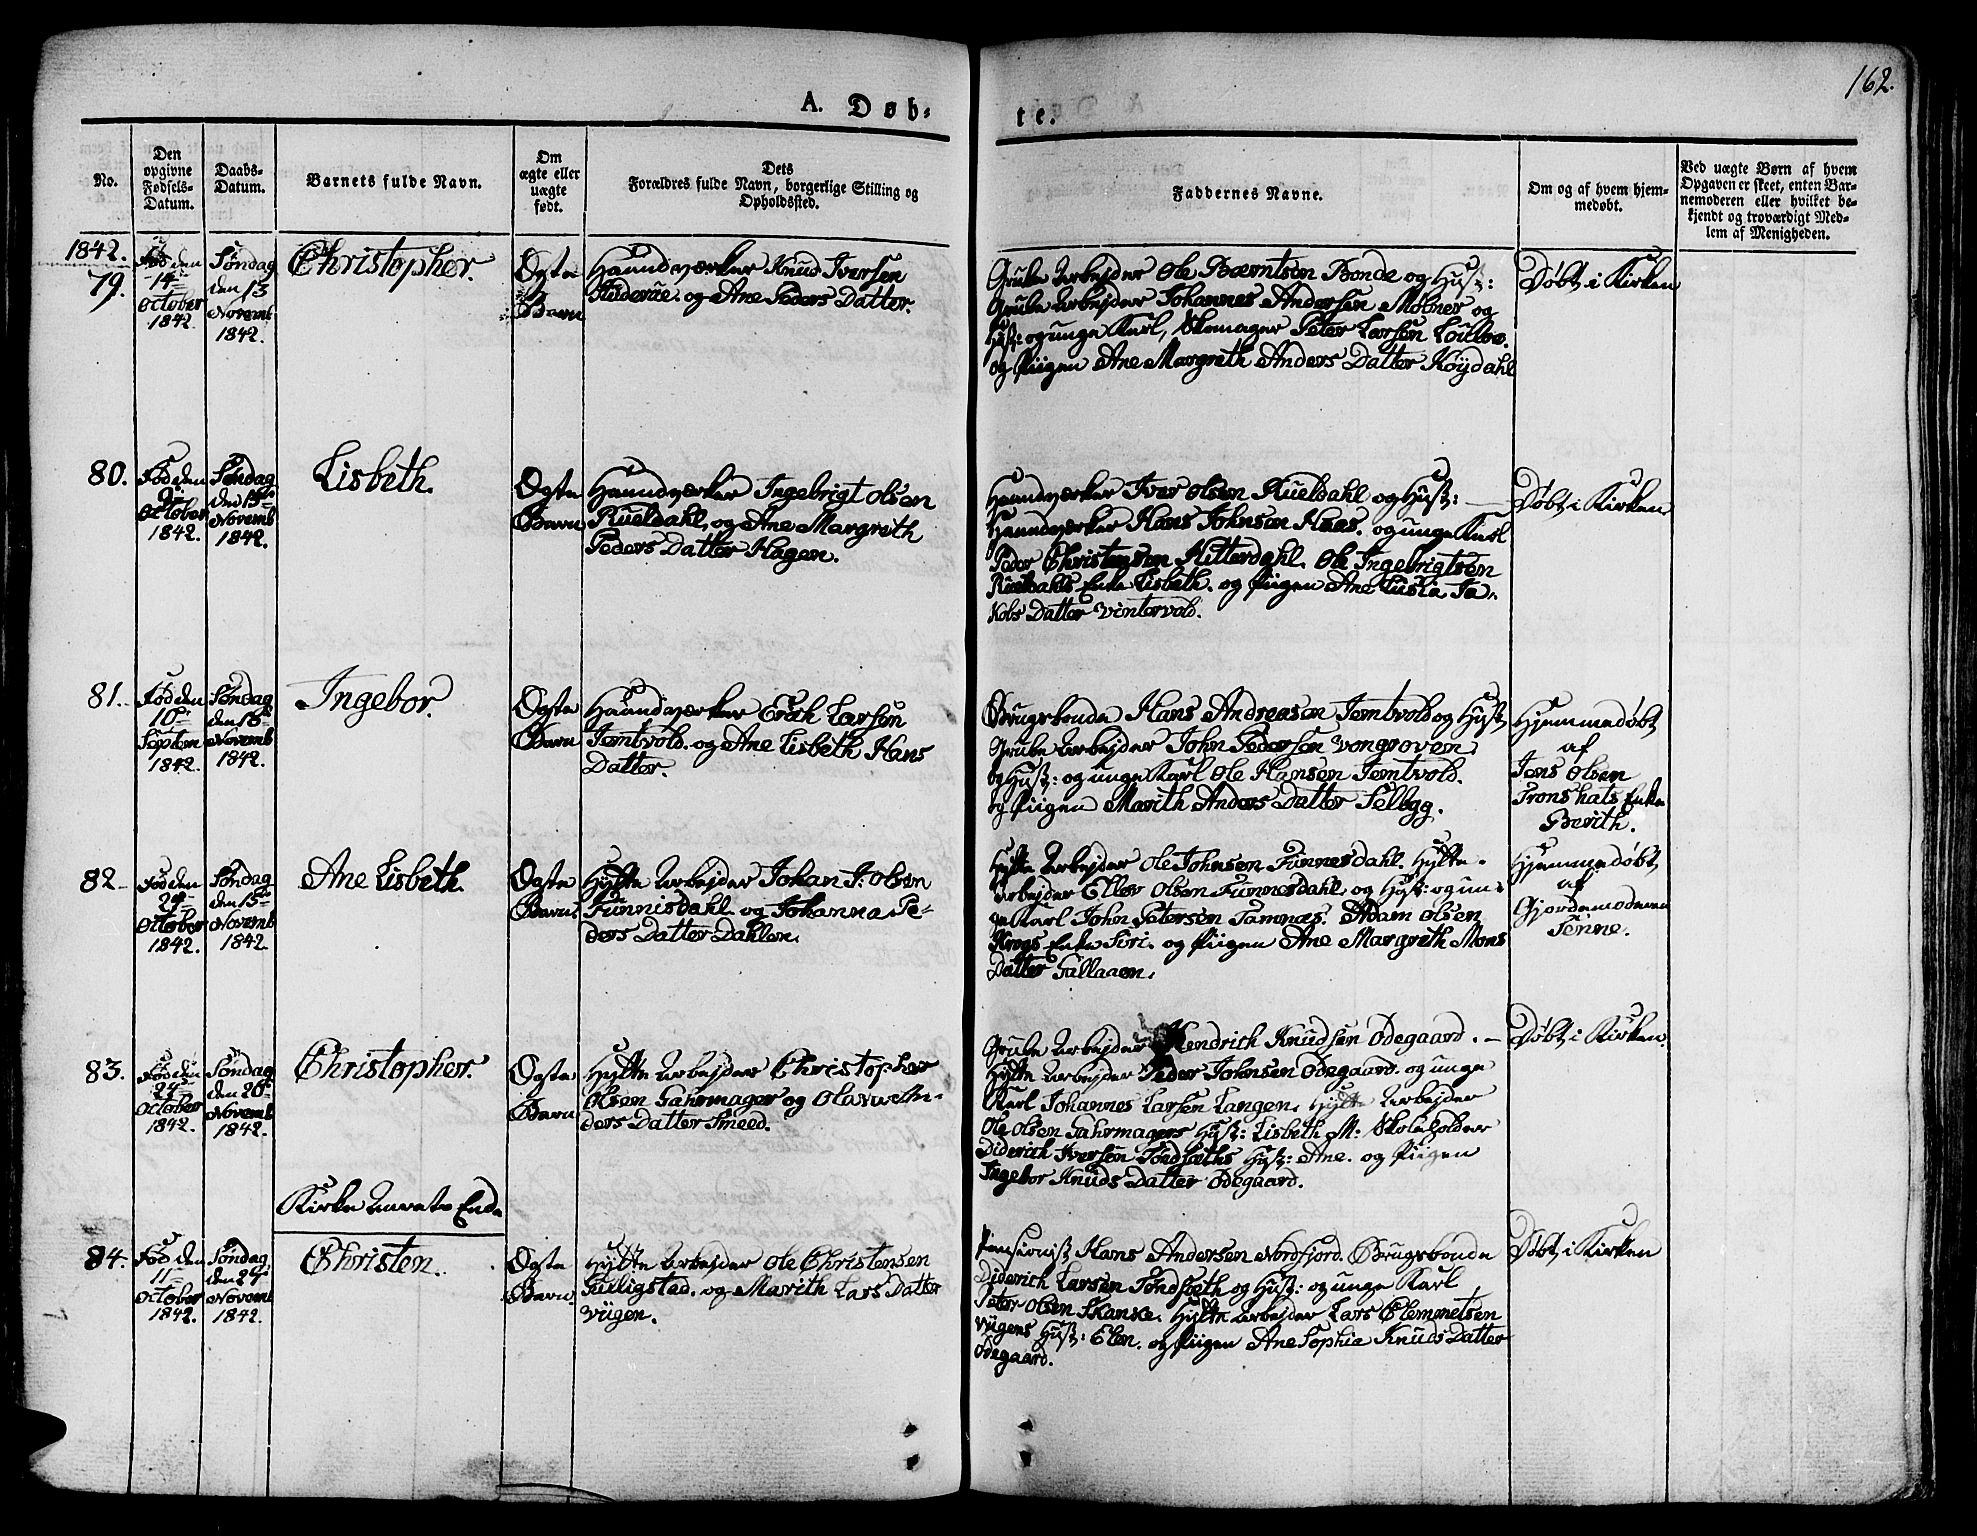 162.
A. Døb-
te.
No.
Den
opgivne
Fødsels-
Datum.
Daabs-
Datum.
Barnets fulde Navn.
Om
ægte eller
uægte
født.
Dets
Forældres fulde Navn, borgerlige Stilling og
Opholdssted.
Faddernes Navne.
Om og af hvem hjem-
medøbt.
Ved uægte Børn af hvem
Opgaven er skeet, enten Bar-
nemoderen eller hvilket be-
kjendt og troværdigt Med-
lem af Menigheden.
1842.
79.
Fød den
14
October
1842.
Søndag
den 13
Novemb
1842.
Christopher.
Ægte
Barn
Haandværker Knud Iversen
og Ane Peders Datter.
Grube Arbejder Ole Berntsen Bonde og Hust:
Grube Arbejder Johannes Andersen Møbner og
Hust: og unge Karl, Skomager Peter Larsen
og Piigen Ane Margreth Anders Datter Røydahl
Døbt i Kirken
80.
Fød den
October
1842.
Søndag
den
Novemb
1842.
Lisbeth.
Ægte
Barn
Haandværker Ingebrigt Olsen
Rueldahl, og Ane Margreth
Peders Datter Hagen.
Haandværker Iver Olsen Rueldahl og Hust:
Haandværker Hans Johnsen Haas. og unge Karl
Peder Christensen Hitterdahl. Ole Ingebrigtsen
Rueldahls Enke Lisbeth. og Piigen Ane Lusia Ja-
kobs Datter Vintervold.
Døbt i Kirken
81.
Fød den
10
Septem
1842.
Søndag
den
Novemb
1842.
Ingebor.
Ægte
Barn
Haandværker Erich Larsen
Jemtvold. og Ane Lisbeth Hans
Datter.
Brugsbonde Hans Andreasen Jemtvold og Hust
Grube Arbejder John Pedersen Vongroven
og Hust: og unge Karl Ole Hansen Jemtvold.
og Piigen Marith Anders Datter Selbyg.
Hjemmedøbt
af
Jens Olsen
Tronshats Enke
Berith.
82
Fød den
October
1842.
Søndag
den
Novemb
1842.
Ane Lisbeth.
Ægte
Barn
Hytte Arbejder Johan J: Olsen
Funnisdahl. og Johanna Pe-
ders Datter Dahlen.
Hytte Arbejder Ole Johnsen Funnesdahl. Hytte-
Arbejder Ellev Olsen Funnesdahl, og Hust: og un-
ge Karl John Petersen Tamnæs. Adam Olsen
Krogs Enke Siri. og Piigen Ane Margreth Mons
Datter Galaaen.
Hjemmedøbt
af
Gjordemoderen
83.
Fød den
24
October
1842.
Søndag
den 20
Novemb
1842.
Christopher.
Ægte
Barn
Hytte Arbejder Christopher
Olsen Gahrmager og Olava An-
ders Datter Smeed.
Grube Arbejder Hendrich Knudsen Ødegaard.
Hytte Arbejder Peder Johnsen Ødegaard. og unge
Karl Johannes Larsen Langen. Hytte Arbejder
Ole Olsen Gahrmagers Hust: Lisbeth M: Skoleholder
Diderich Iversen Tøndsæths Hust: Ane. og Piigen
Ingebor Knuds Datter Ødegaard.
Døbt i Kirken.
Kirke Aarets Ende
84.
Fød den
11
October
1842.
Søndag
den 27
Novemb
1842.
Christen.
Ægte
Barn.
Hytte Arbejder Ole Christensen
Fuligstad. og Marith Lars Datter
Vügen.
Pensionist Hans Andersen Nordfjord. Brugsbonde
Diderich Larsen Tøndsæth og Hust: og unge Karl
Peter Olsen Skanke. Hytte Arbejder Lars Clemmetsen
Vügens Hust: Elen. og Piigen Ane Sophie Knuds Datter
Ødegaard.
Døbt i Kirken